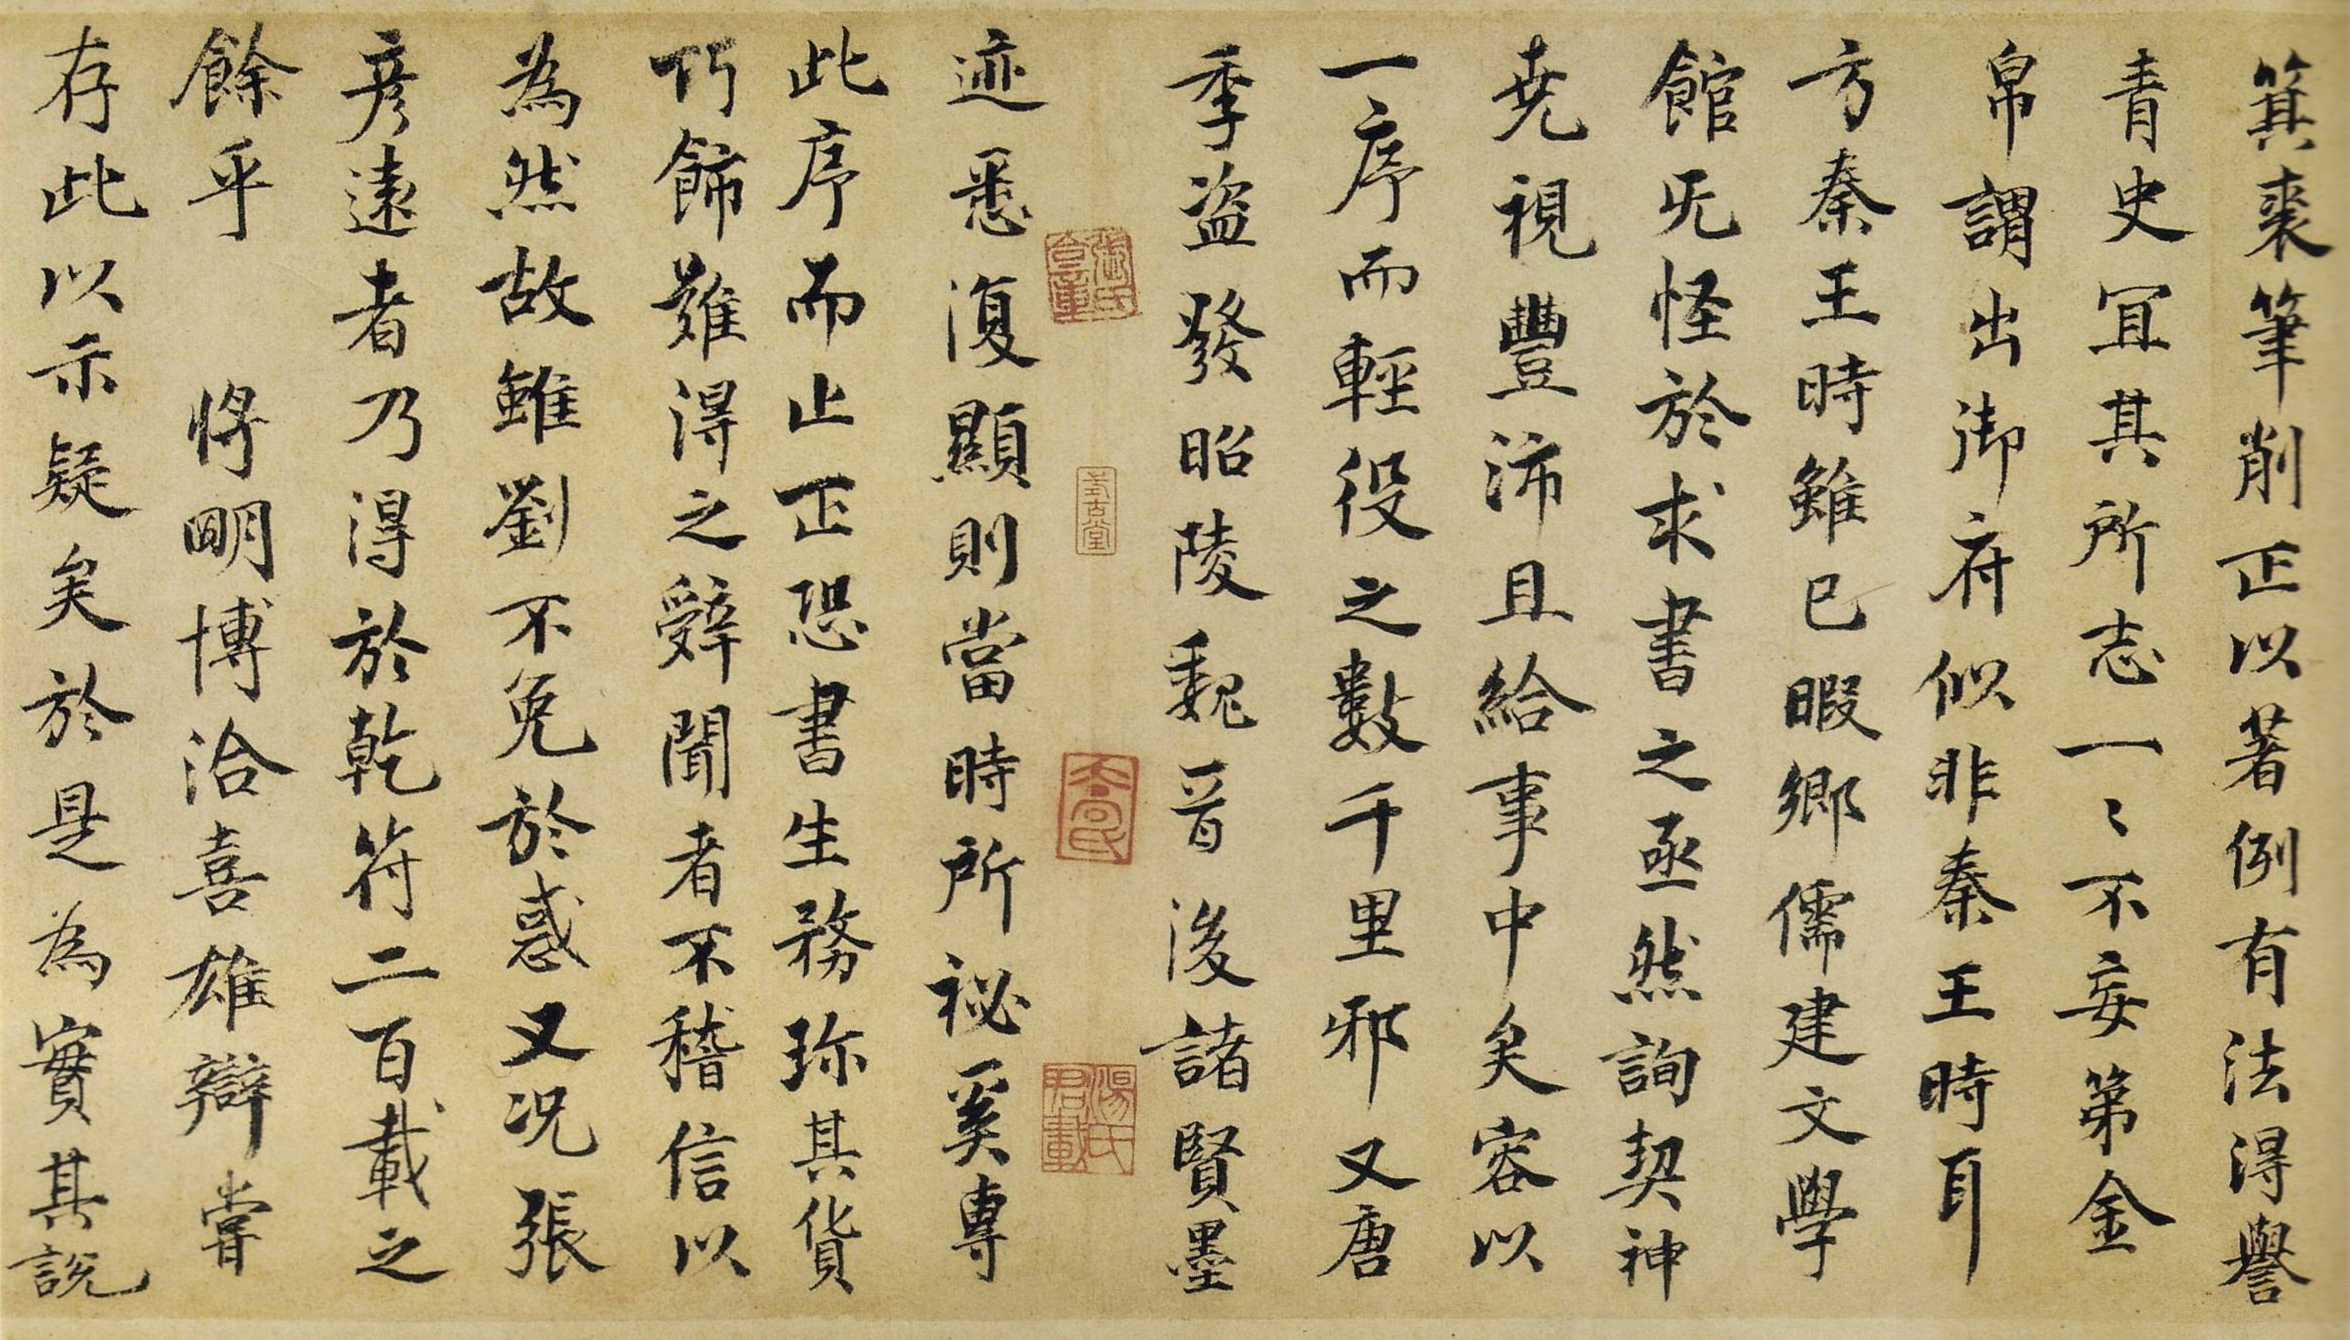 箕裘筆削正以著例有法得譽
青史宜其所志一〻不妄第金
帛謂出御府似非秦王時耳
方秦王時雖已暇鄉儒建文學
館旡怪於求書之亟然詢契神
堯視豐沛且給事中矣容以
一序而輕役之數千里邪又唐
季盜發昭陵魏晉後諸賢墨
迹悉復顯則當時所祕奚專
此序而止正恐書生務珎其貨
巧飾難得之辭聞者不稽信以
為然故雖劉不免於惑又況張
彥遠者乃得於乾符二百載之
餘乎 將明博洽喜雄辯嘗
存此以示疑矣於是為實其說